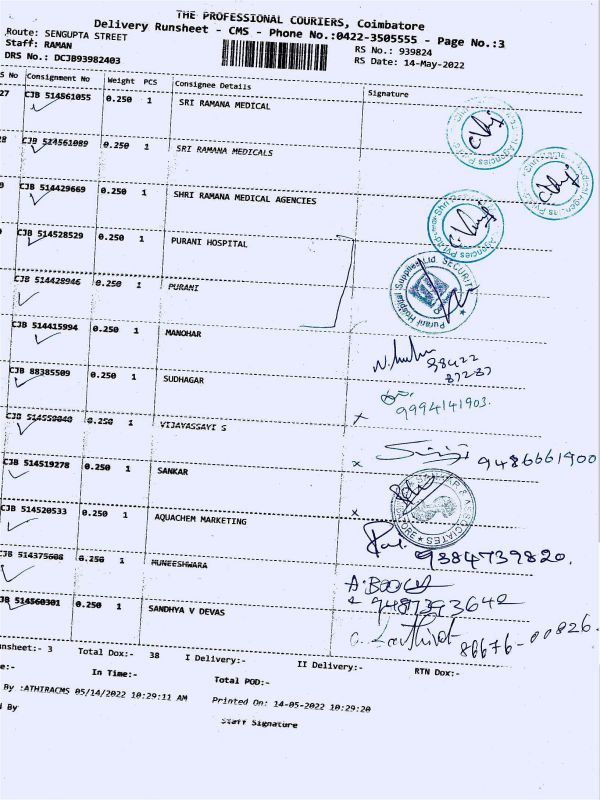 THE PROFESSIONAL COURIERS, Coimbatore
Delivery Runsheet - CMS - Phone No.:0422-3505555 - Page No.:3
Route: SENGUPTA STREET
RS No.: 939824
Staff: RAMAN
RS Date: 14-May-2022
DRS No.: DCJB93982403
S No Consignment No Weight PCS Consignee Details Signature
27 CJB 514561055 0.250 1 SRI RAMANA MEDICAL
28 CJB 514561089 0.250 1 SRI RAMANA MEDICALS
CJB 514429669 0.250 1 SHRI RAMANA MEDICAL AGENCIES
CJB 514528529 0.250 1 PURANI HOSPITAL
Purani Hospital Supplies Ltd SECURITY
CJB 514428946 0.250 1 PURANI
CJB 514415994 0.250 1 MANOHAR
98422
87287
CJB 88385509 0.250 1 SUDHAGAR
9994141903.
CJB 514559840 0.250 1 VIJAYASSAYI S
x
9486661900
CJB 514519278 0.250 1 SANKAR
x
& ASSOCIATES
CJB 514520533 0.250 1 AQUACHEM MARKETING
x
9384739820.
CJB 514375608 0.250 1 MUNEESHWARA
9487393642
CJB 514560301 0.250 1 SANDHYA V DEVAS
86676-00826.
unsheet:- 3 Total Dox:- 38 I Delivery:- II Delivery:- RTN Dox:-
e:- In Time:- Total POD:-
By :ATHIRACMS 05/14/2022 10:29:11 AM Printed On: 14-05-2022 10:29:20
d By Staff Signature